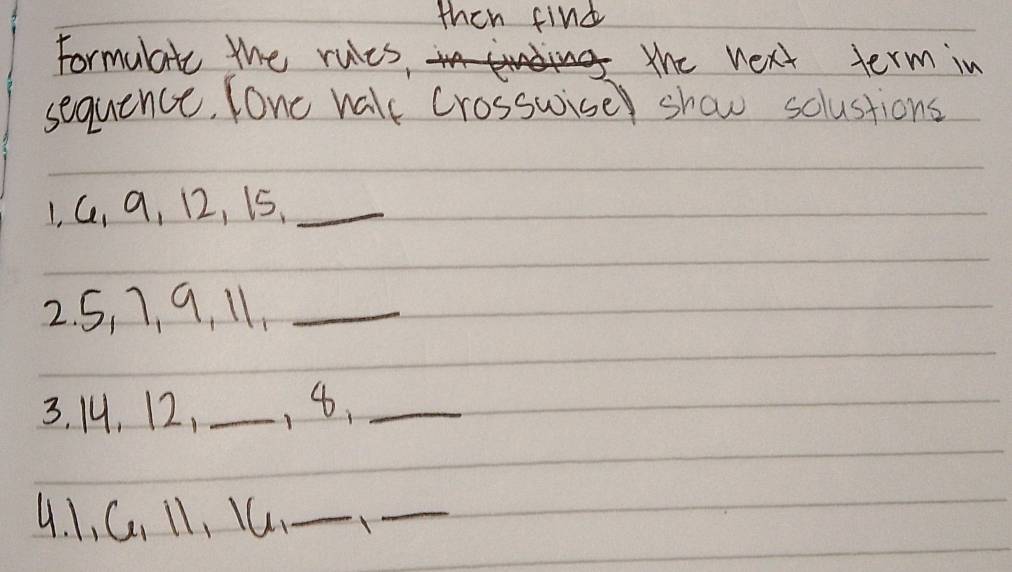 then find
Formulate the rules, in finding the next term in
sequence. (One half crosswise) show solustions
1. 6, 9, 12, 15, ___
2. 5, 7, 9, 11, ___
3. 14, 12, ___, 8, ___
4. 1, 6, 11, 16, ___, ___